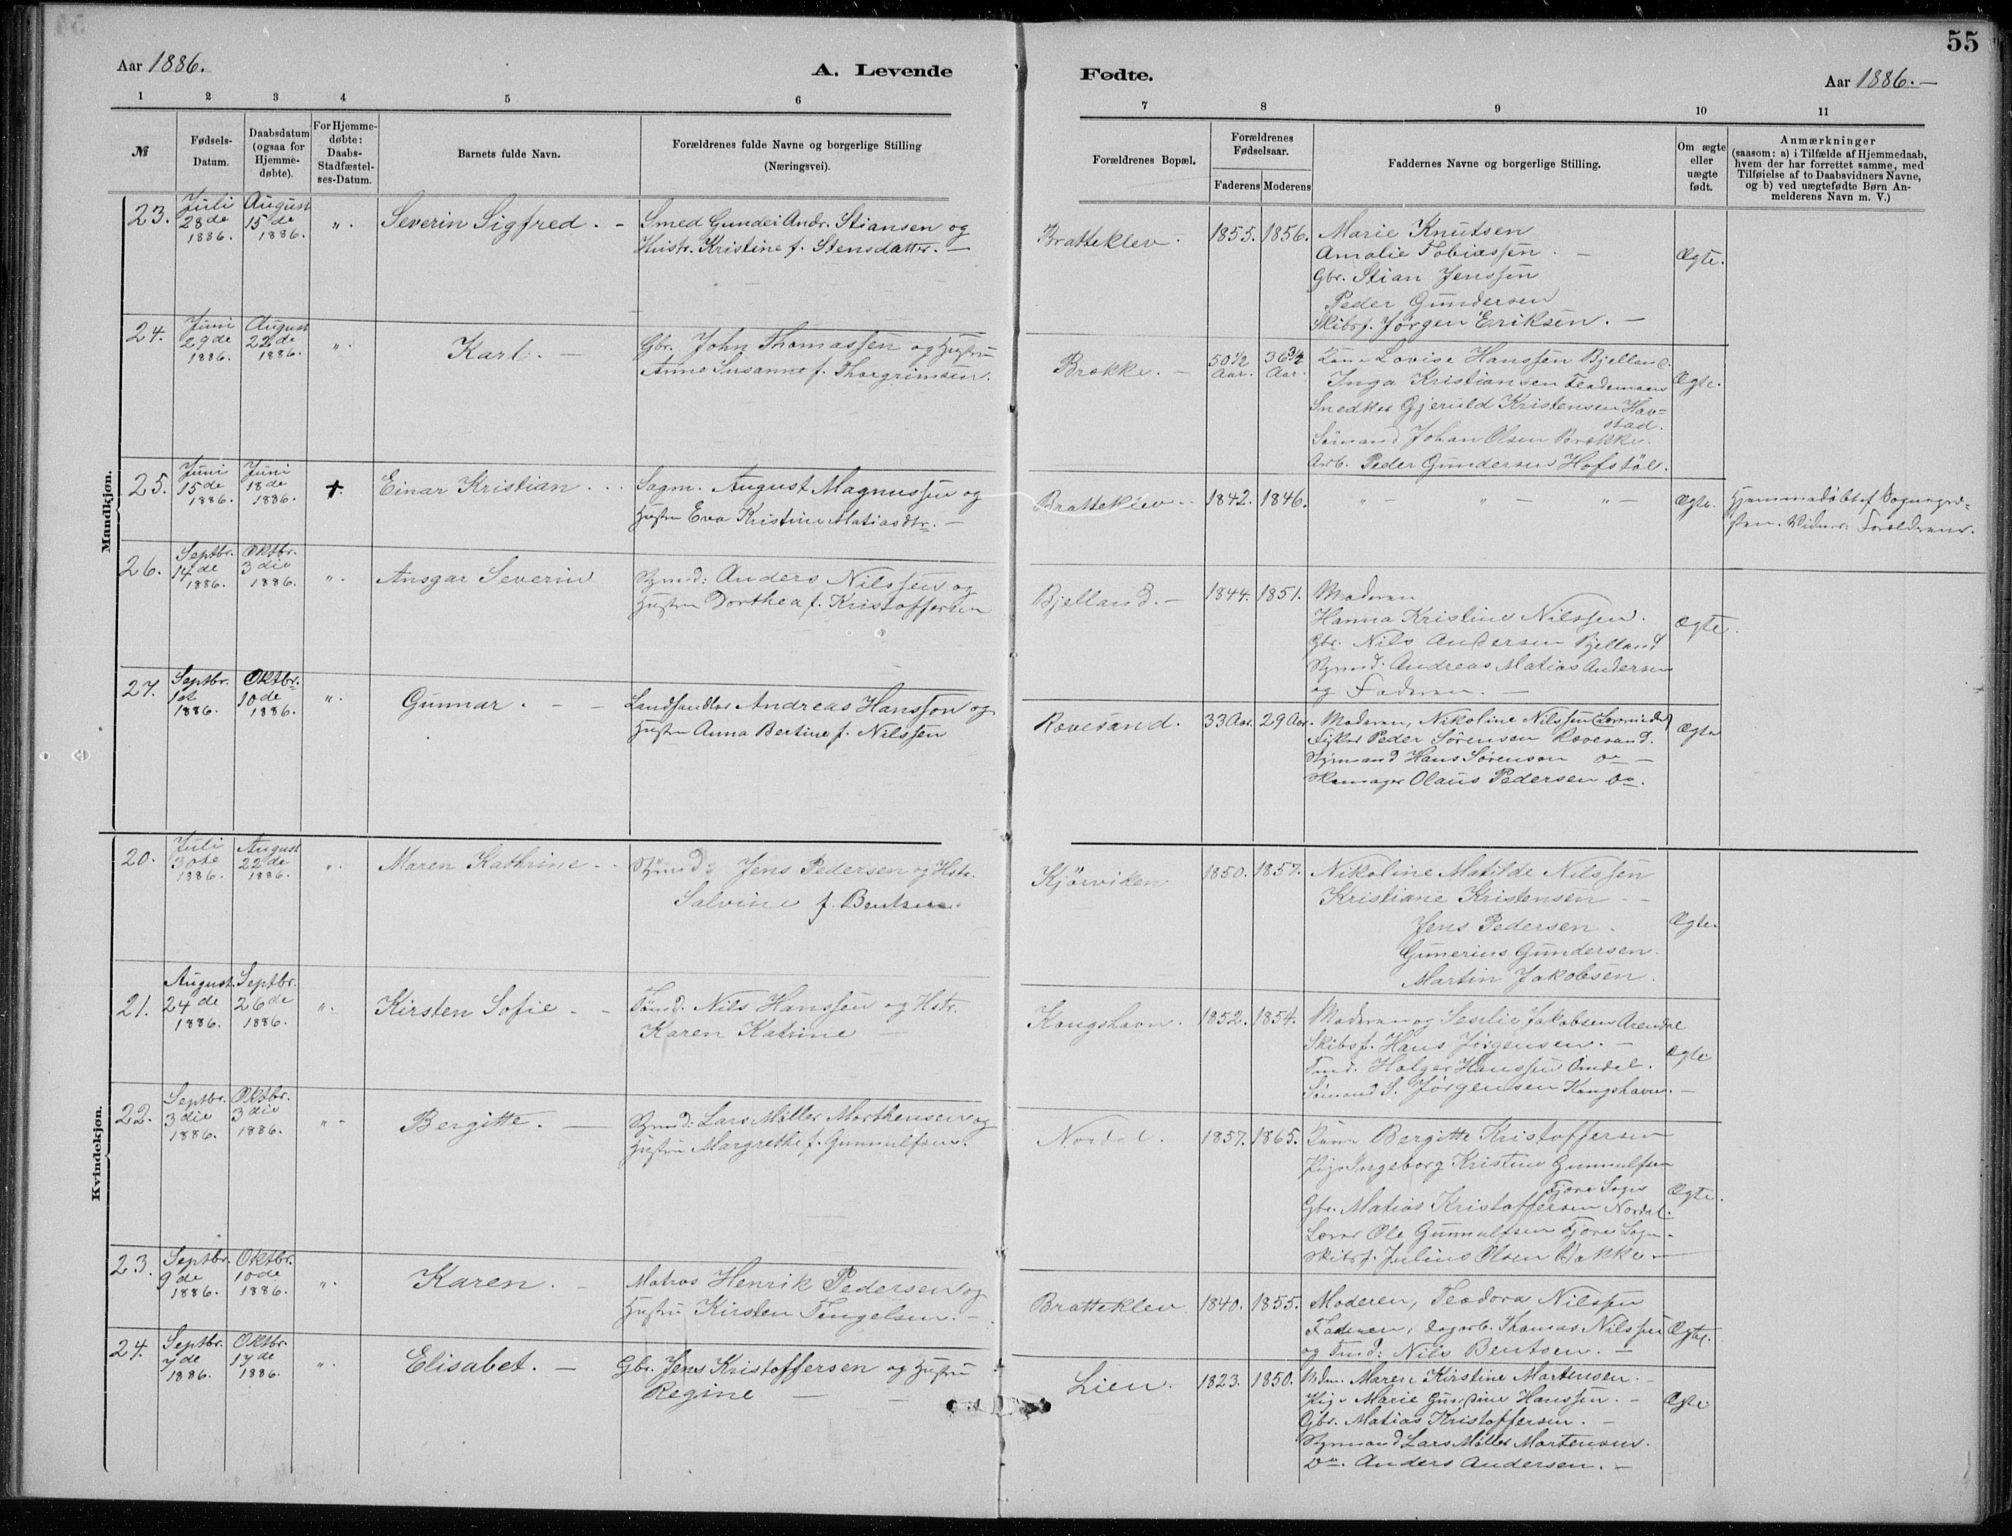 55
Aar 1886.
A. Levende
Fødte.
Aar 1886. —
1 2 3 4 5 6 7 8 9 10 11
№
Fødsels-
Datum.
Daabsdatum
(ogsaa for
Hjemme-
døbte).
For Hjemme-
døbte:
Daabs-
Stadfæstel-
ses-Datum.
Barnets fulde Navn.
Forældrenes fulde Navne og borgerlige Stilling
(Næringsvei).
Forældrenes Bopæl.
Forældrenes
Fødselsaar.
Faderens Moderens
Faddernes Navne og borgerlige Stilling.
Om ægte
eller
uægte
født.
Anmærkninger
(saasom: a) i Tilfælde af Hjemmedaab,
hvem der har forrettet samme, med
Tilføielse af to Daabsvidners Navne,
og b) ved uægtefødte Børn An-
melderens Navn m. V.)
Mandkjøn.
23.
Juli
28de
1886.
August
15de
1886.
".
Severin Sigfred. -
Smed Andr. Stiansen og
Hustr. Kristine f. Stensdatter. —
Bratteklev.
1855. 1856.
Marie Knutsen
Amalie Tobiassen. —
Gbr. Stian Jenssen
Peder Gundersen
Skibsf. Jörgen Eriksen. —
Ægte.
24.
Juni
29de
1886.
August
22de
1886.
".
Karl. —
Gbr. John Thomassen og Hustru
Anne Susanne f. Thorgrimsen.
Brække. —
50 1/2
Aar.
36 3/4
Aar.
Kone Lovise Hanssen Bjelland.
Inga Kristiansen
Snedker Gjeruld Kristensen Hav-
stad.
Sömand Johan Olsen Brække.
Arb. Peder Gundersen Hofstöl.
Ægte.
25.
Juni
15de
1886.
Juni
18de
1886.
+
Einar Kristian . . .
Sagm. August Magnussen og
Hustru Eva Kristine Matiasdtr. —
Bratteklev. -
1842. 1846.
" — " — " —
Ægte.
Hjemmedöbt af Sognepre-
sten. Vidner: Forældrene.
26.
Septbr.
14de
1886.
Oktbr.
3die
1886.
".
Ansgar Severin
Styrmd: Anders Nilssen og
Hustru Dorthea f. Kristoffersen
Bjelland. —
1844. 1851.
Moderen
Hanna Kristine Nilssen.
Gbr. Nils Andersen Bjelland
Styrmd. Andreas Matias Andersen
og Faderen. —
Ægte.
27.
Septbr.
1ste
1886.
Oktbr.
10de
1886.
".
Gunnar. — —
Landhandler Andreas Hansson og
Hustru Anna Bertine f. Nilssen
Revesand.
33 Aar. 29 Aar.
Moderen, Nikoline Nilssen
Fisker Peder Sörensen Revesand.
Styrmand Hans Sörenson Do —
Olaus Pedersen Do.
Ægte
Kvindekjøn.
20.
Juli
30te
1886.
August
22de
1886.
".
Maren Kathrine. -
Styrmd: Jens Pedersen og Hstr.
Salvine f. Bentsen.
Kjörviken
1850. 1857.
Nikoline Matilde Nilssen
Kristiane Kristensen - -
Jens Pedersen.
Gunerius Gundersen.
Martin Jakobsen.
Ægte.
21.
August
24de
1886.
Septbr.
26de
1886.
".
Kirsten Sofie. -
Tömd. Nils Hanssen og Hstr.
Karen Katrine —
Kongshavn.
1852. 1854.
Moderen og Sesilie Jakobsen Arendal
Skibsf. Hans Jörgensen. —
Tmd. Holger Hanssen Omdal.
Sömand S. Jörgensen Kongshavn. —
Ægte
22.
Septbr.
3die
1886.
Oktbr.
3die
1886.
" -
Bergitte. —
Styrmd: Lars Möller Morthensen og
Hustru Margrethe f. Gunnulfsen.
Nordal.
1857. 1865.
Kone Bergitte Kristoffersen
Pige Ingeborg Kristine Gunnulfsen
Fjære Sogn
Gbr. Matias Kristoffersen Nordal.
Ole Gunnulfsen Fjære Sogn.
Skibsf. Julius Olsen Bakke —
Ægte.
23.
Septbr.
9de
1886.
Oktbr.
10de
1886.
".
Karen. —
Matros Henrik Pedersen og
Hustru Kirsten Tengelsen. -
Bratteklev.
1840. 1855.
Moderen, Teodora Nilssen
Faderen, Dagarb. Thomas Nilssen
og Tmd: Nils Bentsen. —
Ægte.
24.
Septbr.
7de
1886.
Oktbr.
17de
1886.
".
Elisabet. —
Gbr. Jens Kristoffersen og Hustru
Regine —
Lien.
1823. 1850.
Maren Kirstine Mortensen. —
Pige Marie Gundine Hanssen. —
Gbr. Matias Kristoffersen. —
Styrmand Lars Möller Mortensen.
Do. Anders Andersen. —
Ægte